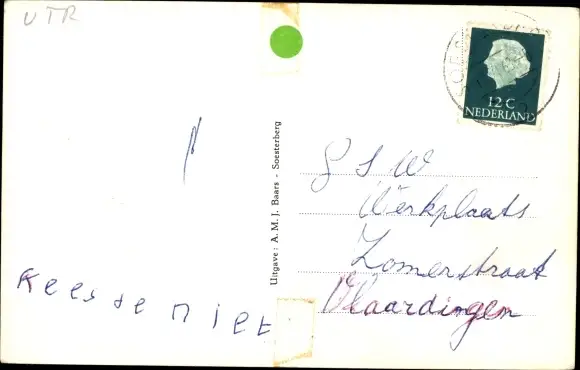 UTR
12 C
NEDERLAND
Uitgave: A. M. J. Baars - Soesterberg
G S W
Werkplaats
Zomerstraat
Vlaardingen
Kees de Niet